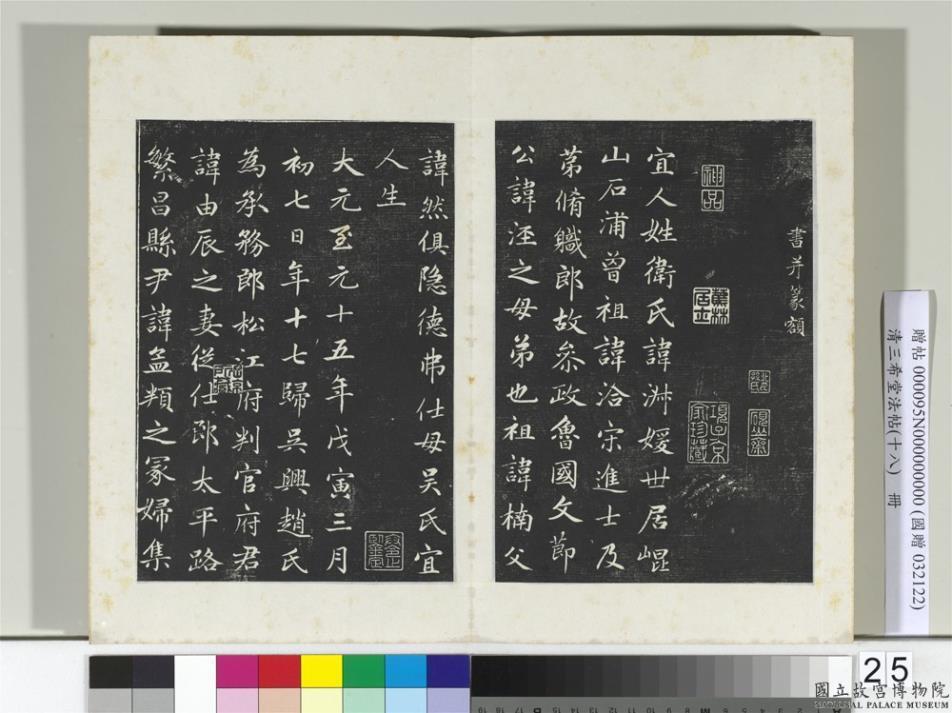 書并篆額
宜人姓衛氏諱淋媛丗居崐
山石浦曾祖諱洽宋進士及
苐脩軄郎故叅政魯國文莭
公諱涇之母弟也祖諱楠父
諱然俱隐德弗仕母吴氏宜
人生
大元至元十五年戊寅三月
初七日年十七歸吴興趙氏
為承務郎松江府判官府君
諱由辰之妻従仕郎太平路
繁昌縣尹諱孟頪之冡婦集
神品
贈帖 000095N000000000 (國贈 032122)
清三希堂法帖(十八) 冊
25
國立故宮博物院
NATIONAL PALACE MUSEUM